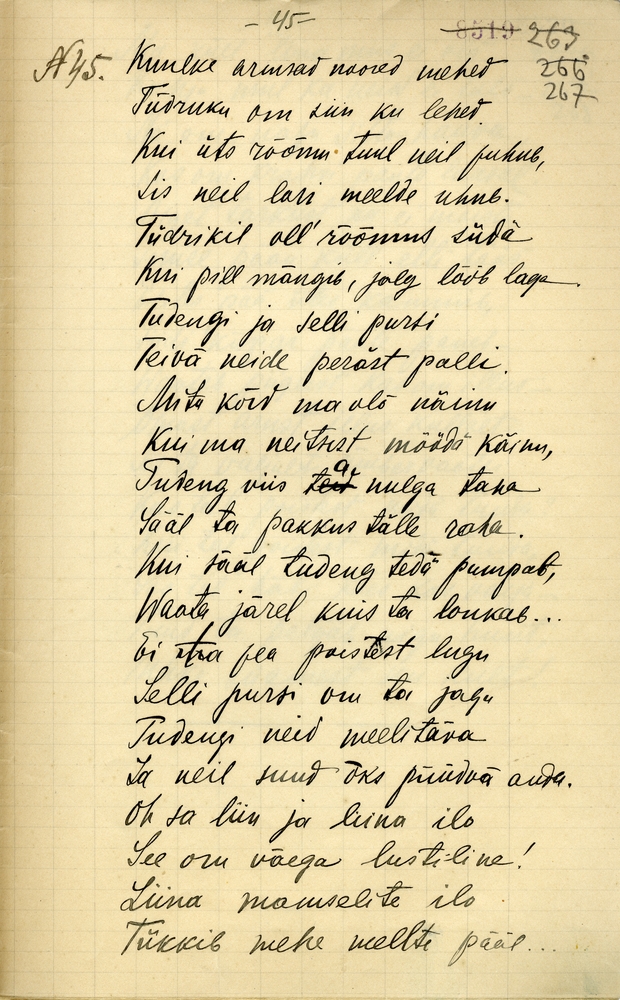 - 45 -
8519 263
266
267
N 45. Kuulke armsad noored mehed
Tüdruku om siin ku lehed.
Kui üts rõõmu tuul neil puhub,
Sis neil lari meelde uhub.
Tüdrikil oll' rõõmus südä
Kui pill mängib, jalg lööb laga.
Tudengi ja selli pursi
Teivä neide peräst palli.
Mitu kõrd ma olõ näinu
Kui ma neitsist möödä käinu,
Tudeng viis ta nulga taha
Sääl ta pakkus tälle raha.
Kui sääl tudeng tedä pumpab,
Waata järel kuis ta lonkab...
Ei ta pea poistest lugu
Selli pursi om ta jagu
Tudengi neid meelitava
Ja neil suud õks püüdvä anda.
Oh sa liin ja liina ilo
See om väega lustiline!
Liina mamselite ilo
Tükkib mehe meelte pääl...